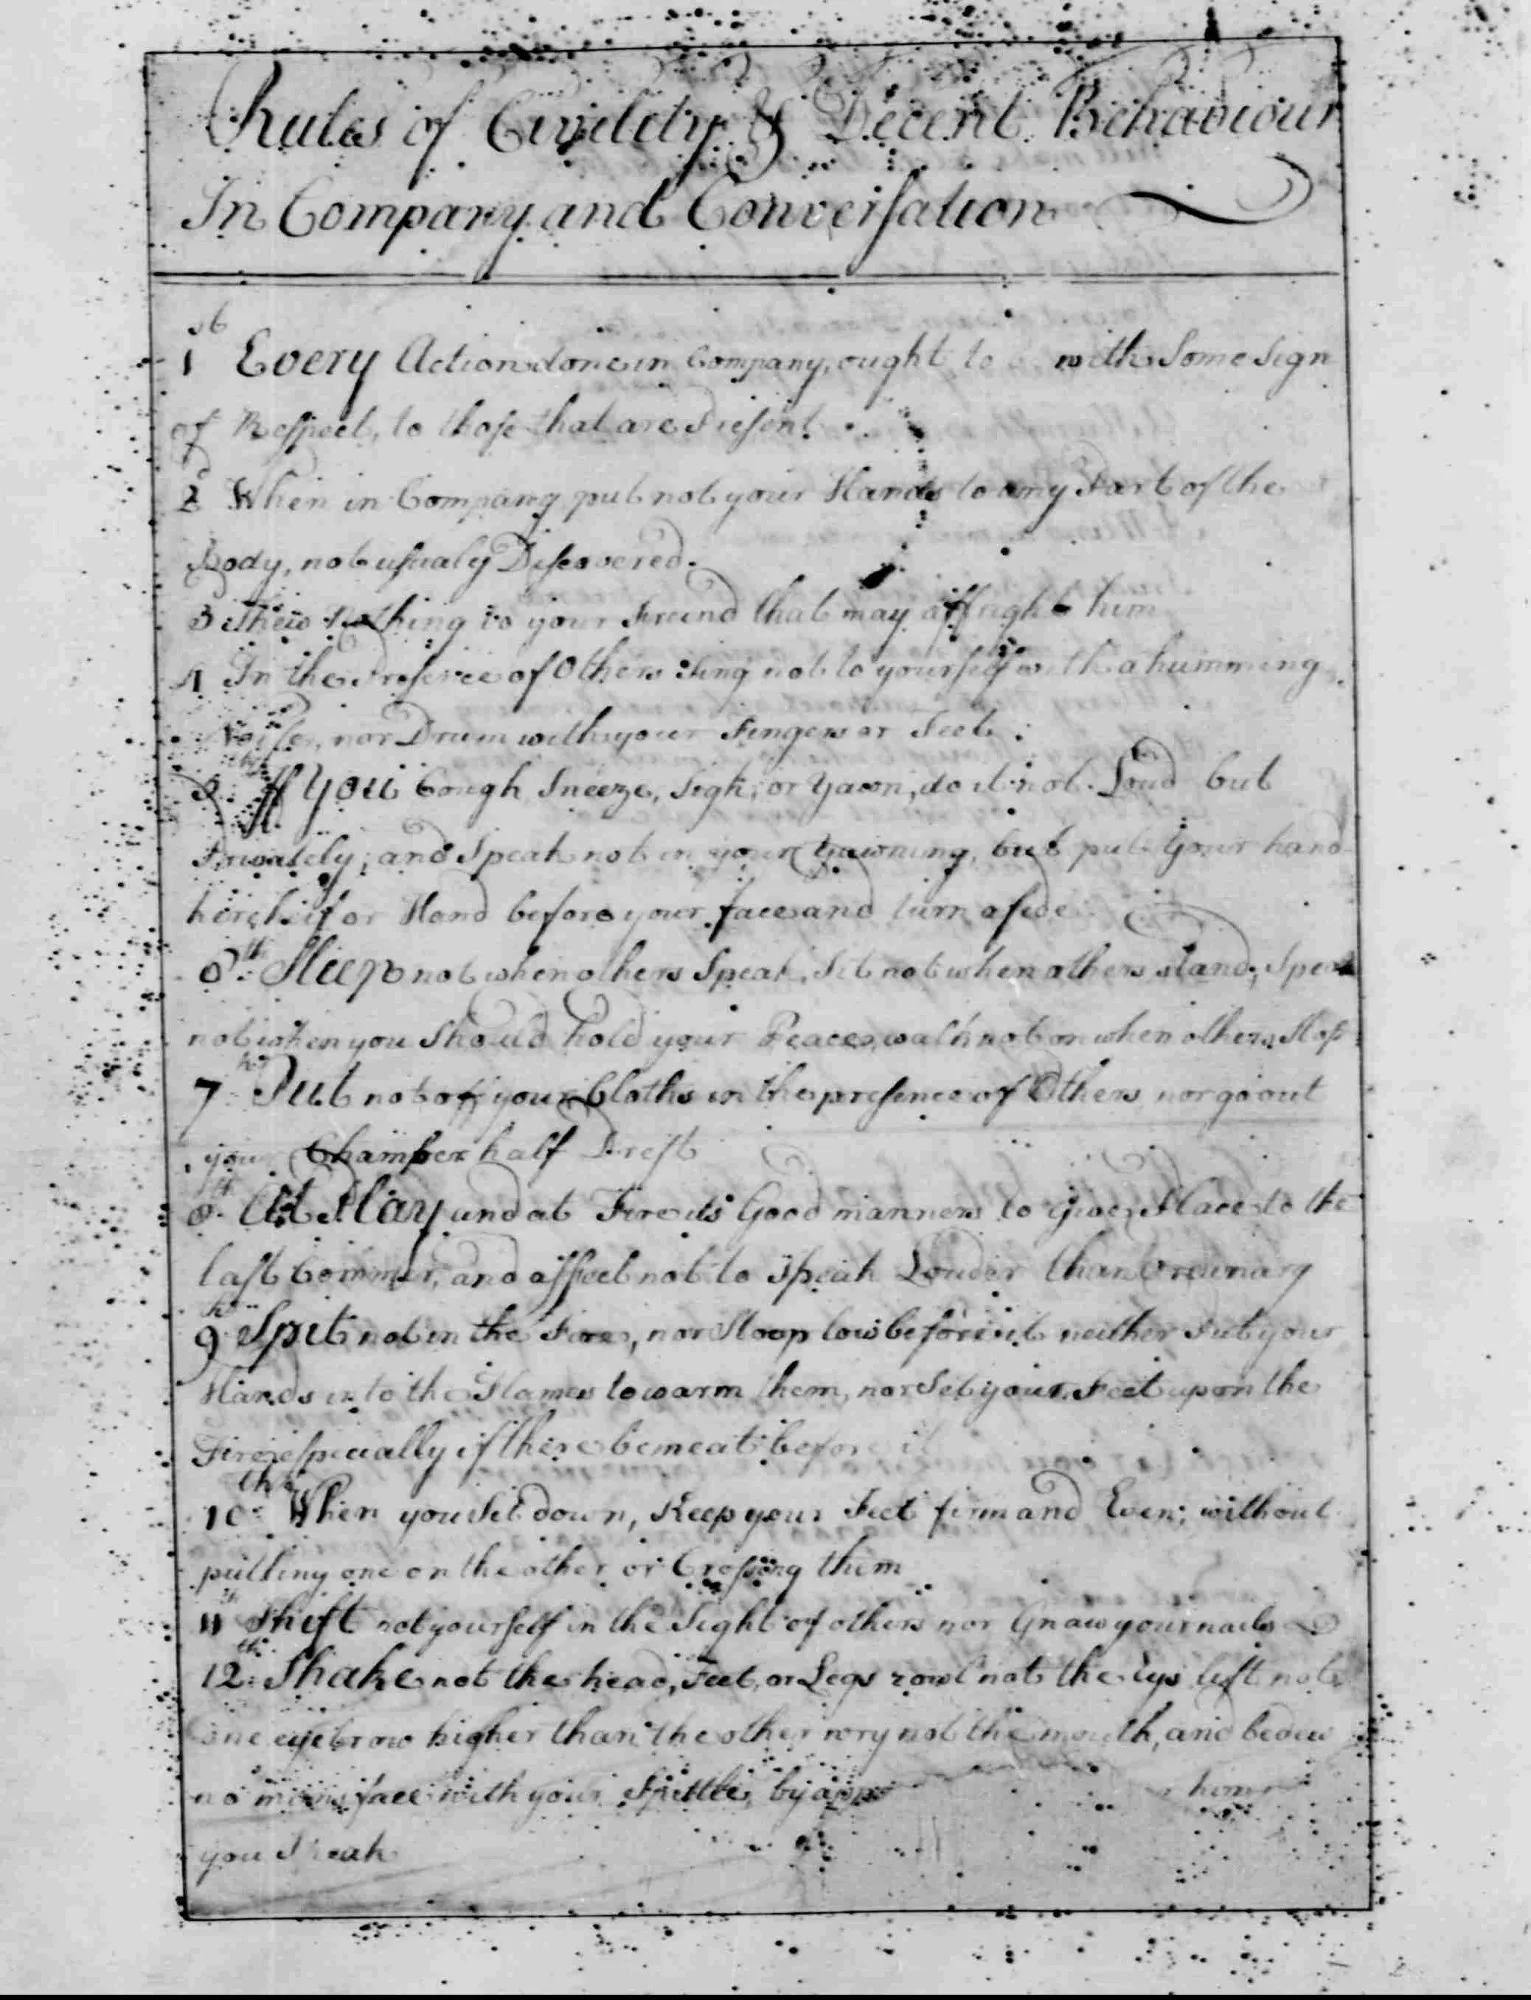 Rules of Civility & Decent Behaviour
In Company and Conversation
1st Every Action done in Company, ought to with Some Sign
of Respect, to those that are Present.
2d When in Company, put not your Hands to any Part of the
Body, not usualy Discovered.
3 Shew Nothing to your Freind that may affright him
4 In the Presence of Others Sing not to yourself with a humming
Noise, nor Drum with your Fingers or Feet.
5th If You Cough, Sneeze, Sigh, or Yawn, do it not Loud but
Privately; and Speak not in your Yawning, but put Your hand
kercheif or Hand before your face and turn aside
6th Sleep not when others Speak, Sit not when others stand, Speak
not when you Should hold your Peace, walk not on when others Stop
7th Put not off your Cloths in the presence of Others, nor go out
your Chamber half Drest
8th At Play and at Fire its Good manners to Give Place to the
last Commer, and affect not to Speak Louder than Ordinary
9th Spit not in the Fire, nor Stoop low before it neither Put your
Hands into the Flames to warm them, nor Set your Feet upon the
Fire especially if there be meat before it
10th When you Sit down, Keep your Feet firm and Even; without
putting one on the other or Crossing them
11th Shift not yourself in the Sight of others nor Gnaw your nails
12th Shake not the head, Feet, or Legs rowl not the Eys lift not
one eyebrow higher than the other wry not the mouth, and bedew
no mans face with your Spittle, by
you Speak